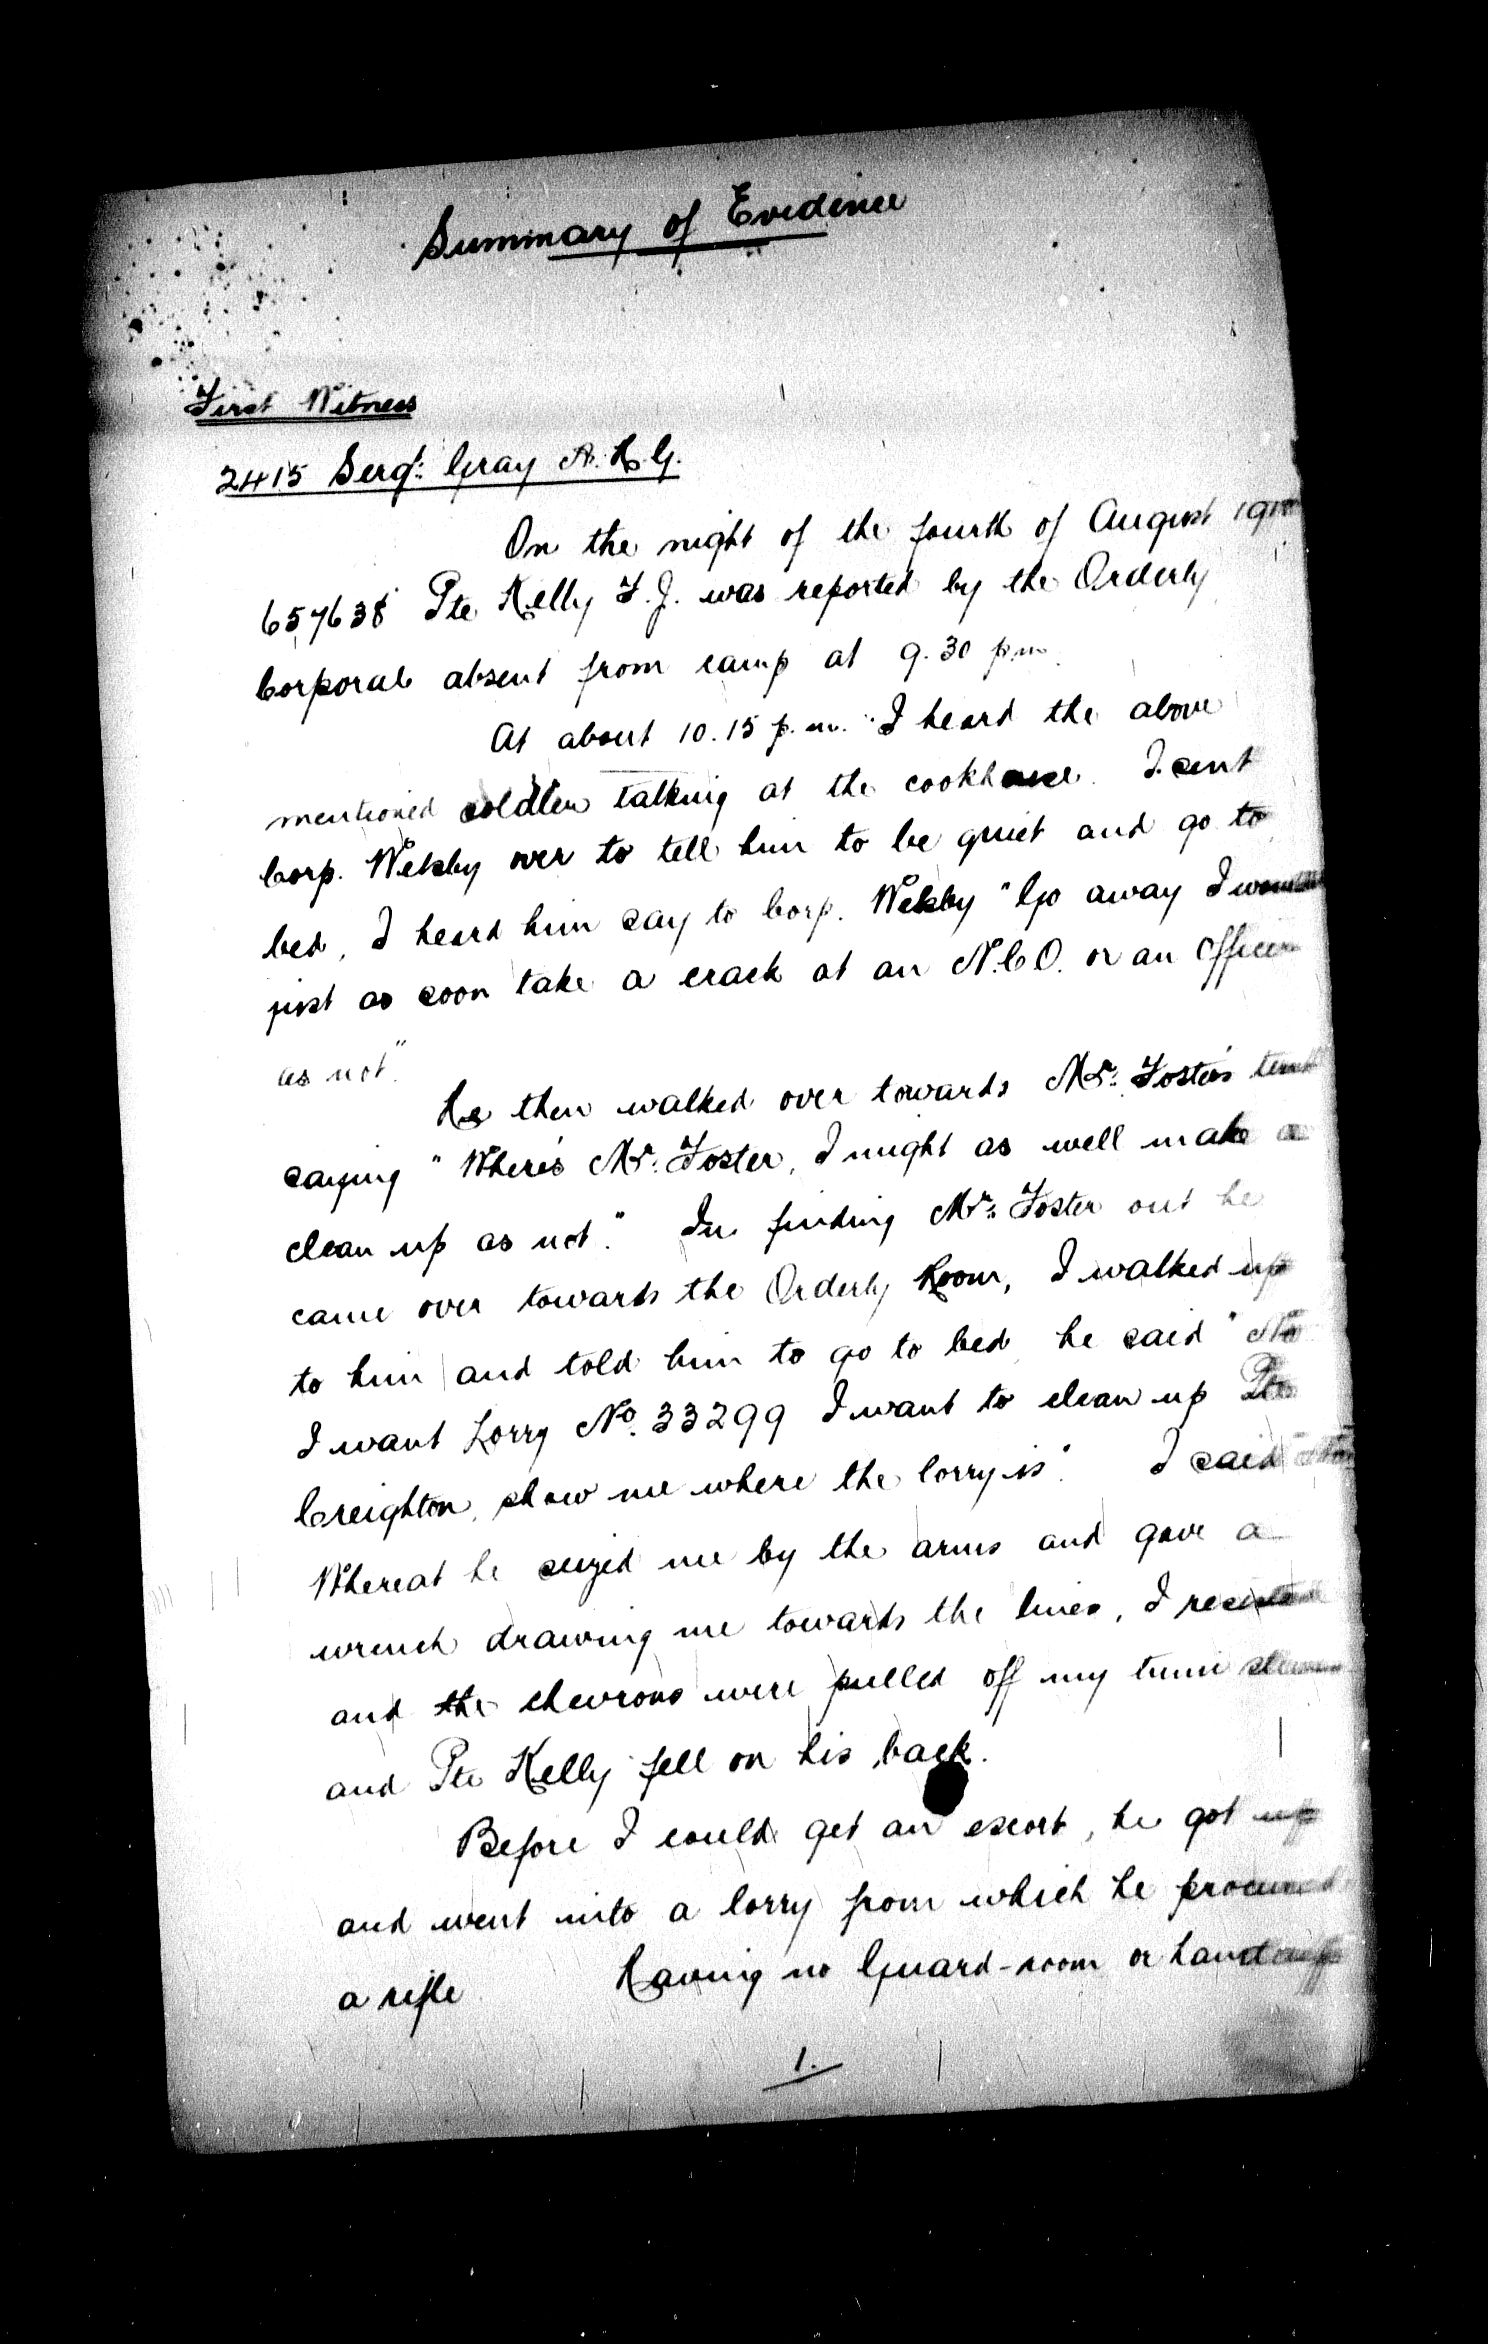 Summary of Evidence
First Witness
2415 Sergt: Gray A.R.G.
On the night of the fourth of August
657638 Pte Kelly F.J. was reported by the Orderly
Corporal absent from camp at 9.30 p.m.
At about 10.15 p.m. I heard the above
mentioned soldier talking at the cookhouse. I sent
Corp. Weksby over to tell him to be quiet and go to
bed, I heard him say to Corp. Weksby "Go away I would
just as soon take a crack at an N.C.O. or an Officer
as not".
He then walked over towards Mr: Foster's tent
saying "Where's Mr: Foster, I might as well make a
clean up as not." In finding Mr: Foster out he
came over towards the Orderly Room, I walked up
to him and told him to go to bed he said "No
I want Lorry No. 33299 I want to clean up Pte
Creighton, show me where the lorry is". I said
Whereat he seized me by the arms and gave a
wrench drawing me towards the lines, I resisted
and the chevrons were pulled off my tunic sleeve
and Pte Kelly fell on his back.
Before I could get an escort, he got up
and went into a lorry from which he procured
a rifle. Having no Guard-room or handcuffs
1.